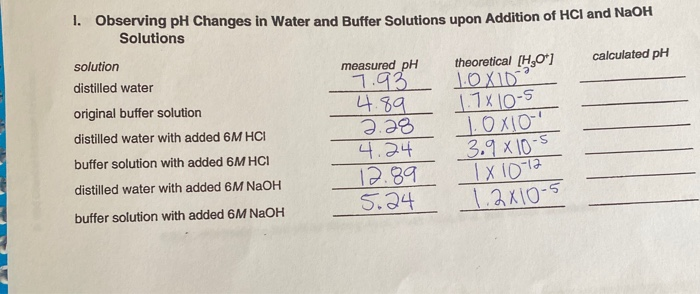 I. Observing pH Changes in Water and Buffer Solutions upon Addition of HCl and NaOH
Solutions
solution measured pH theoretical [H₃O⁺] calculated pH
distilled water 7.93 1.0 X 10⁻⁷
original buffer solution 4.89 1.7 X 10⁻⁵
distilled water with added 6M HCl 2.28 1.0 X 10⁻¹
buffer solution with added 6M HCl 4.24 3.9 X 10⁻⁵
distilled water with added 6M NaOH 12.89 1 X 10⁻¹²
buffer solution with added 6M NaOH 5.24 1.2X10⁻⁵